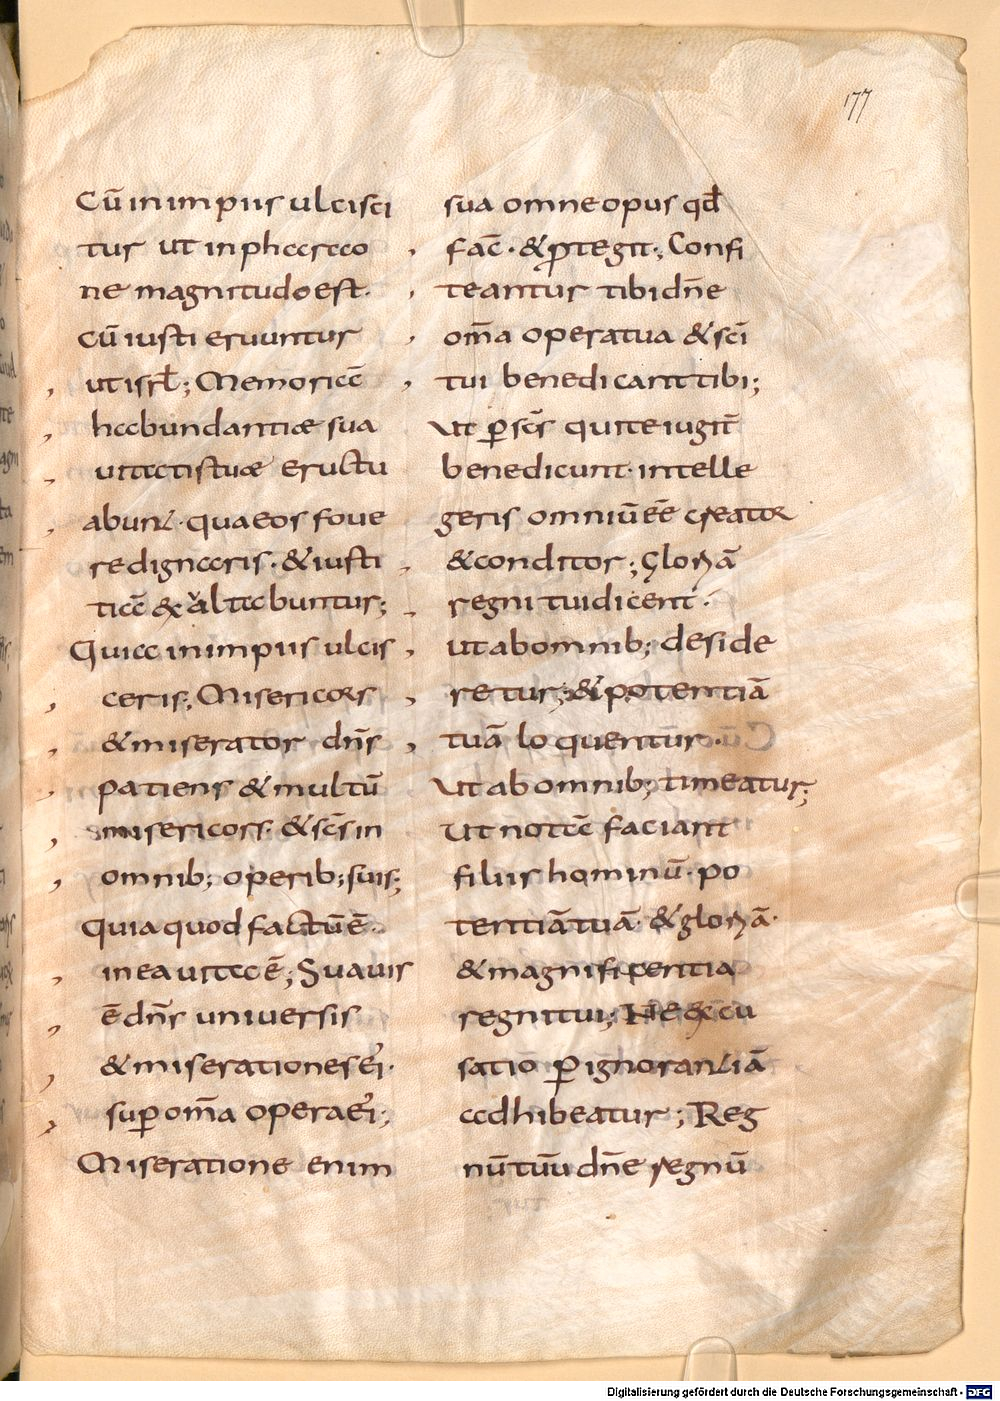 177
Cū in impiis ulcisci
tur ut in pharao
ne magnitudo est.
Cū iusti eruuntur
ut isrł; Memoriā
habundantiae sua
uitatis tuae eructu
abunt. qua eos foue
re dignaris. & iusti
tiā exaltabuntur;
Quia in impiis ulcis
ceris; Misericors
& miserator dn̄s
patiens & multū
misericors. & sc̄s in
omnib; operib; suis;
Quia quod factū ē.
in ea uita ē; Suauis
ē dn̄s uniuersis
& miserationes ei.
sup om̄a opera ei;
Miseratione enim
sua omne opus qđ
fac̄. & ꝓtegit; Confi
teantur tibi dn̄e
om̄a opera tua & sc̄i
tui benedicant tibi;
Ut ꝑ sc̄s qui te iugit̄
benedicunt. intelle
geris omniū ēē creator
& conditor; Gloriā
regni tui dicent.
ut ab omnib; deside
retur; & potentiā
tuā loquentur.
Ut ab omnib; timeatur;
Ut notā faciant
filiis hominū. po
tentiā tuā. & gloriā.
& magnificentia
regni tui; Ne excu
satio ꝑ ignorantiā
adhibeatur; Reg
nū tuū dn̄e regnū
Digitalisierung gefördert durch die Deutsche Forschungsgemeinschaft - DFG